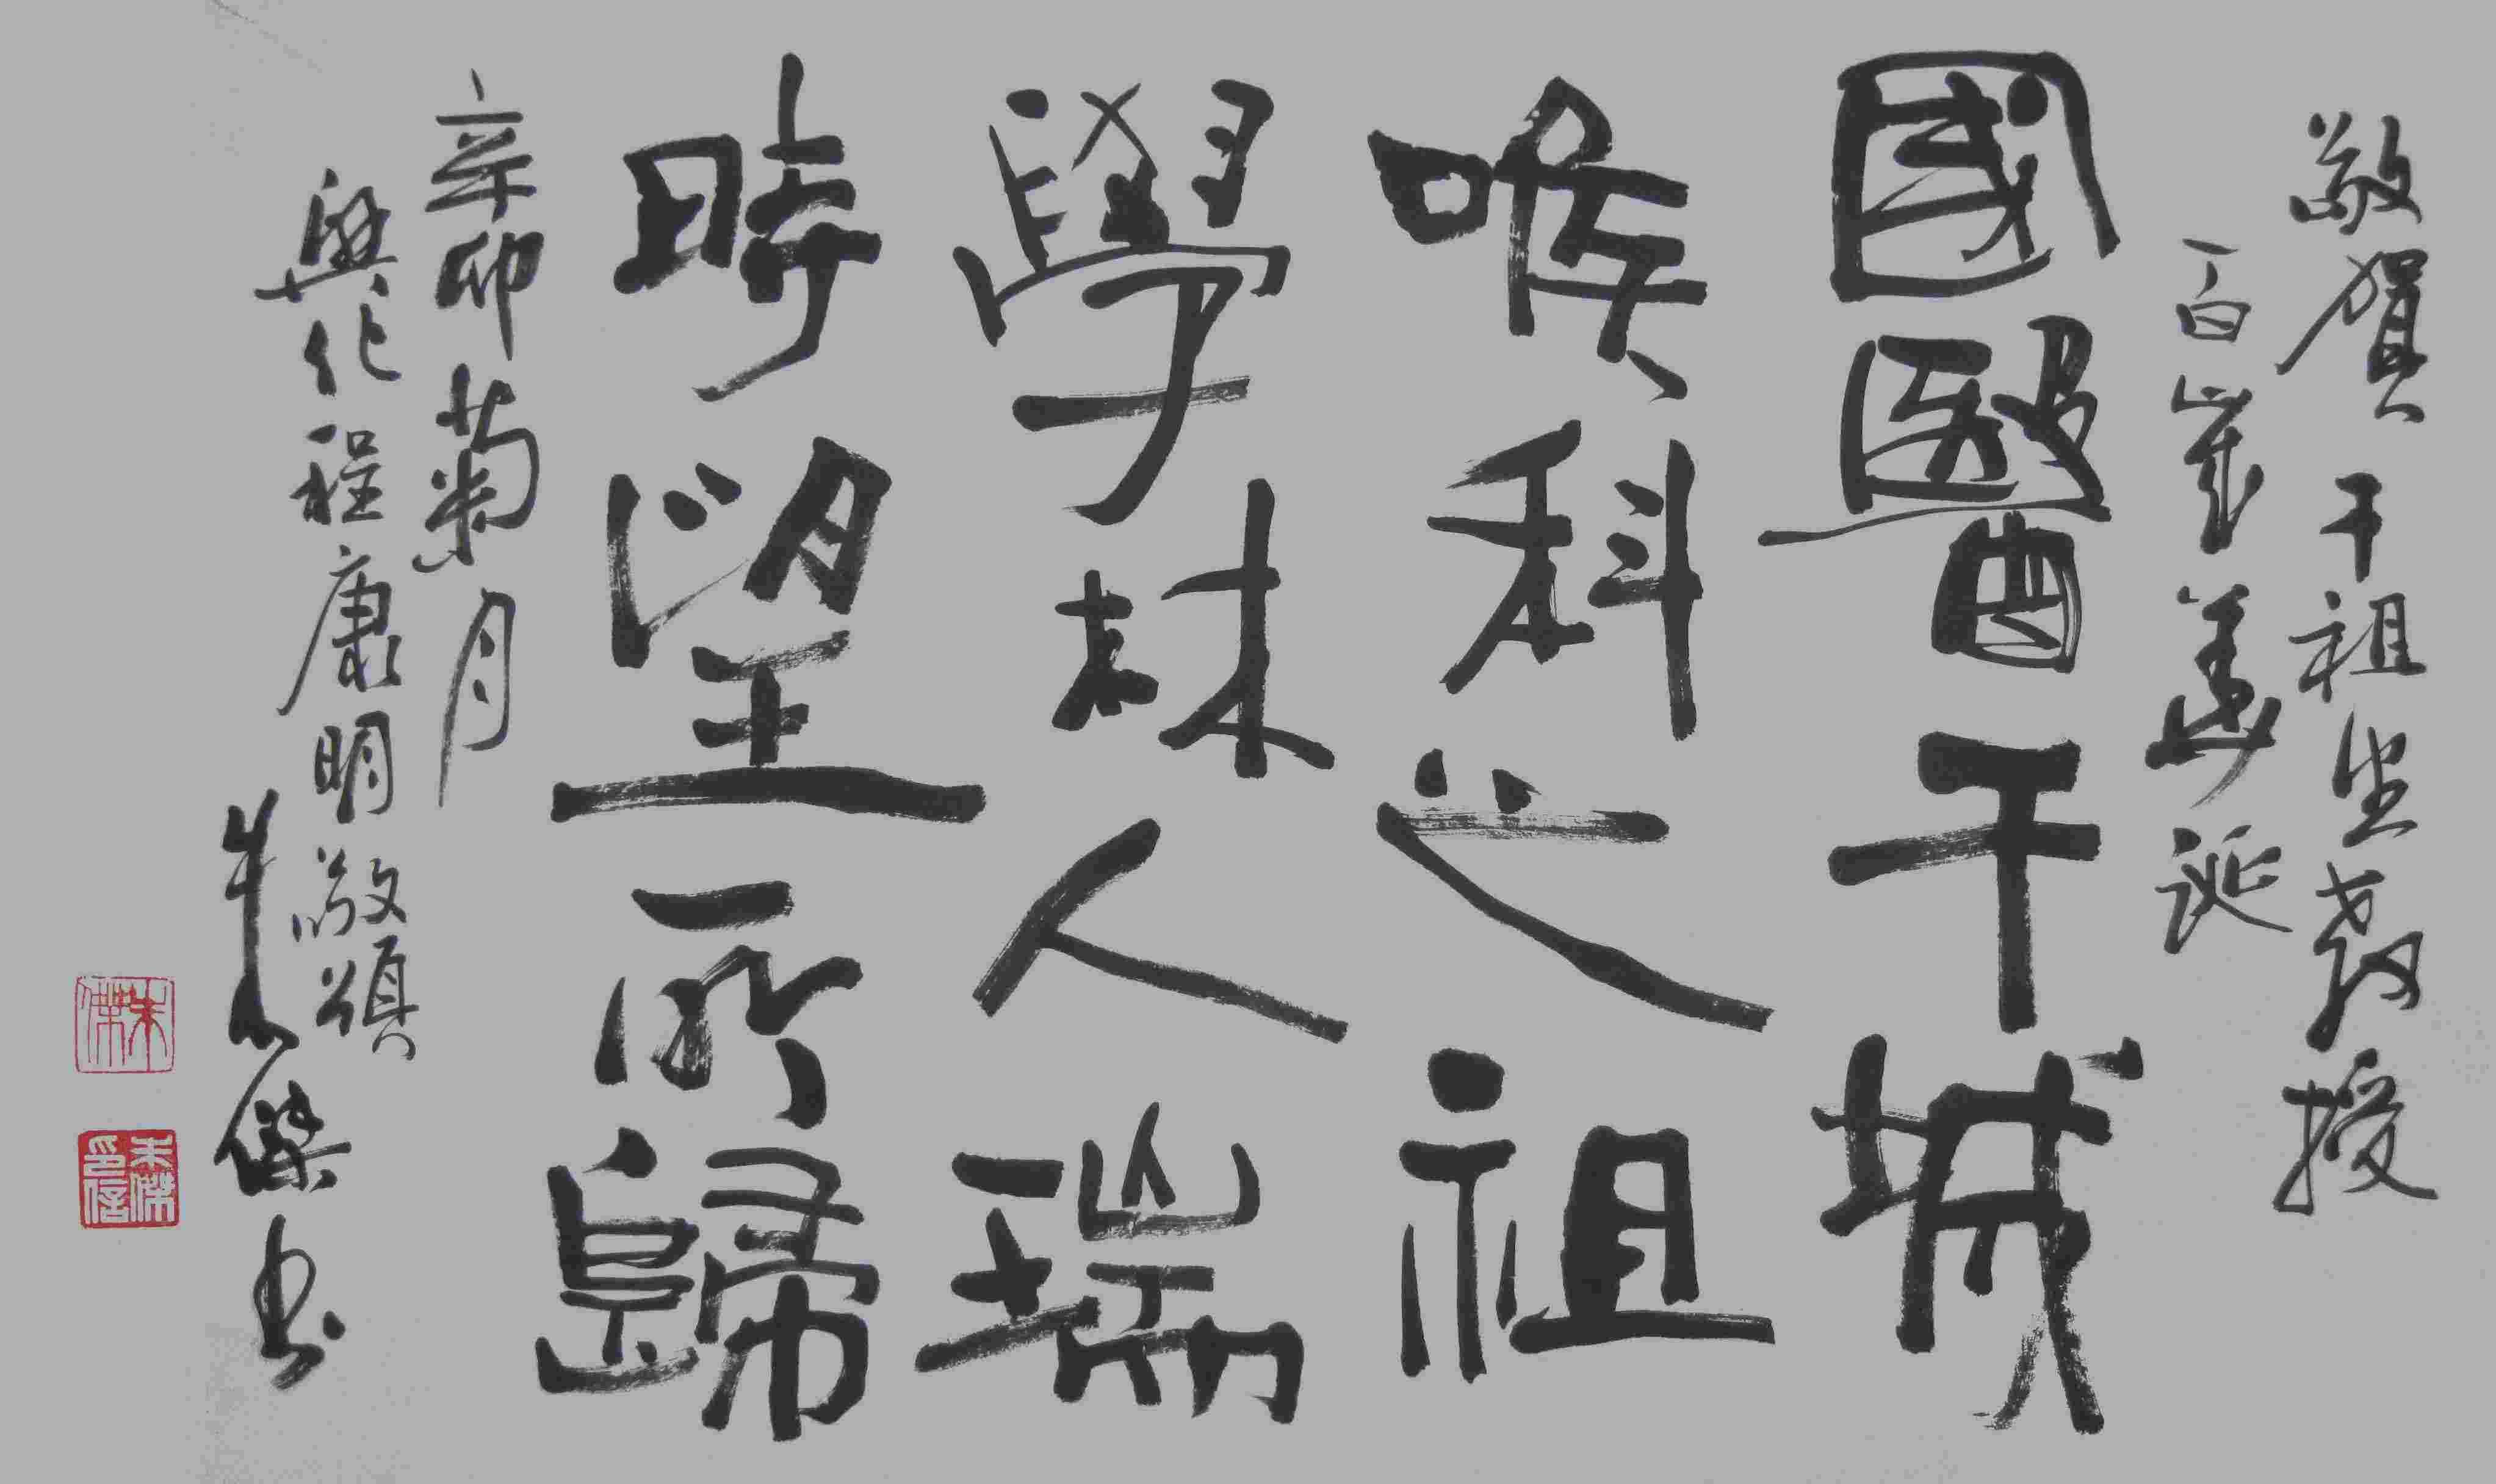 敬賀干祖望教授
百歲華誕
國醫干城
喉科之祖
學林人瑞
時望所歸
辛卯菊月
興化程康明敬頌
朱傑书
朱傑
朱傑印信